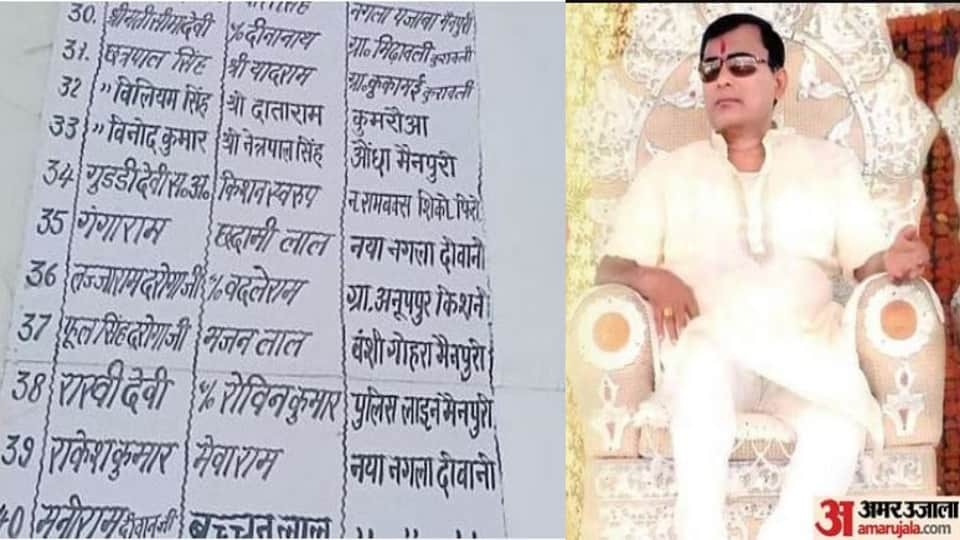 30. श्रीमती सीमादेवी % दीनानाथ ग्रा. मिढावली कुरावली
31. छत्रपाल सिंह श्री यादराम ग्रा. कुरावली
32 " विलियम सिंह श्री दाताराम कुमरौआ
33 " विनोद कुमार श्री नेत्रपाल सिंह औंधा मैनपुरी
34 गुडडी देवी स॰अ॰ किशन स्वरुप न. रामबक्स शिको. फिरो
35 गंगाराम छदामी लाल नया नगला दीवानी
36 लज्जाराम दरोगा जी % वदलेराम ग्रा. अनूपपुर किशनी
37 फूल सिंह दरोगा जी भजन लाल वंशी गोहरा मैनपुरी
38 राखी देवी % रोविन कुमार पुलिस लाइन मैनपुरी
39 राकेश कुमार मेवाराम नया नगला दीवानी
40 मनीराम दीवान जी बच्चन लाल
अ अमर उजाला
amarujala.com